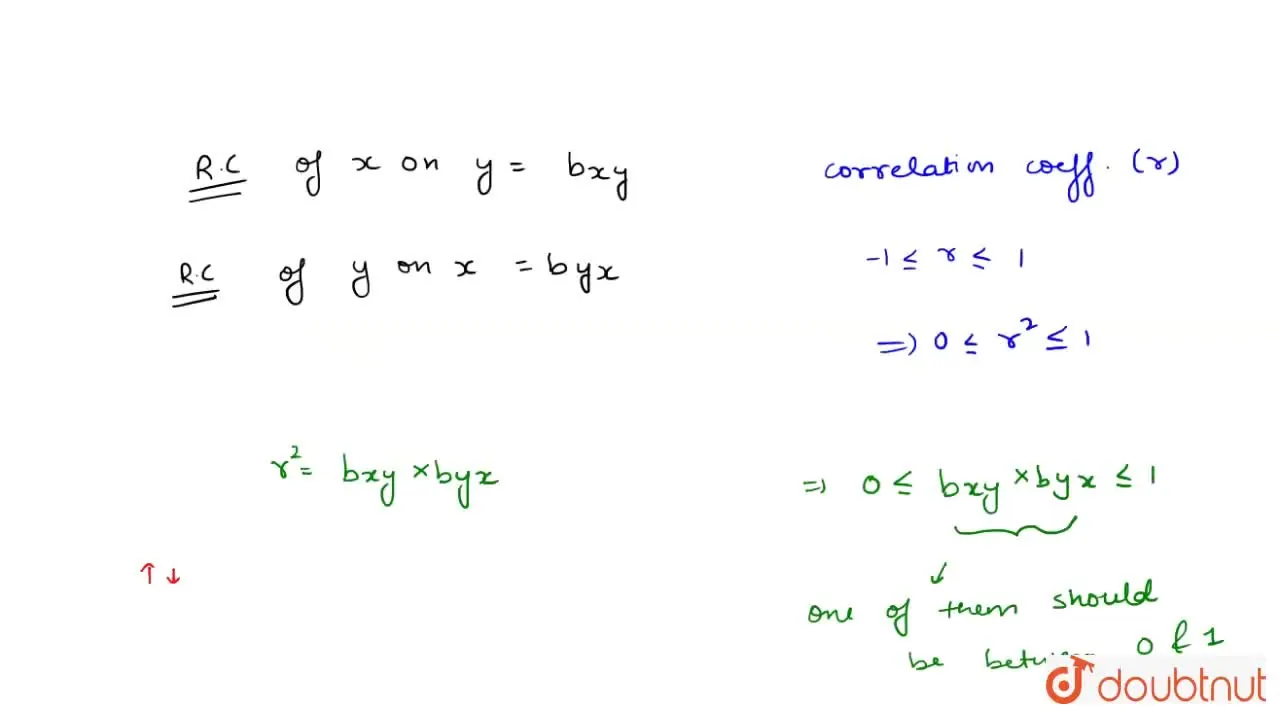 R.C of x on y = bxy
R.C of y on x = byx
r² = bxy × byx
↑ ↓
correlation coeff. (r)
-1 ≤ r ≤ 1
=) 0 ≤ r² ≤ 1
=) 0 ≤ bxy × byx ≤ 1
one of them should
be between 0 & 1
doubtnut